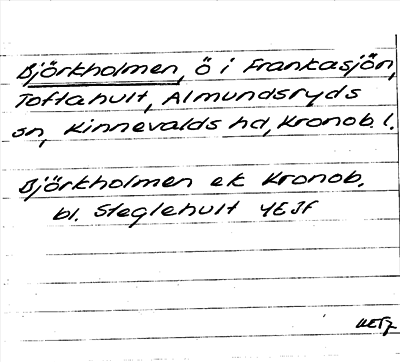 Björkholmen, ö i Frankasjön,
Toftahult, Almundsryds
sn, Kinnevalds hd, Kronob. l.
Björkholmen ek Kronob.
bl. Steglehult 4E5f